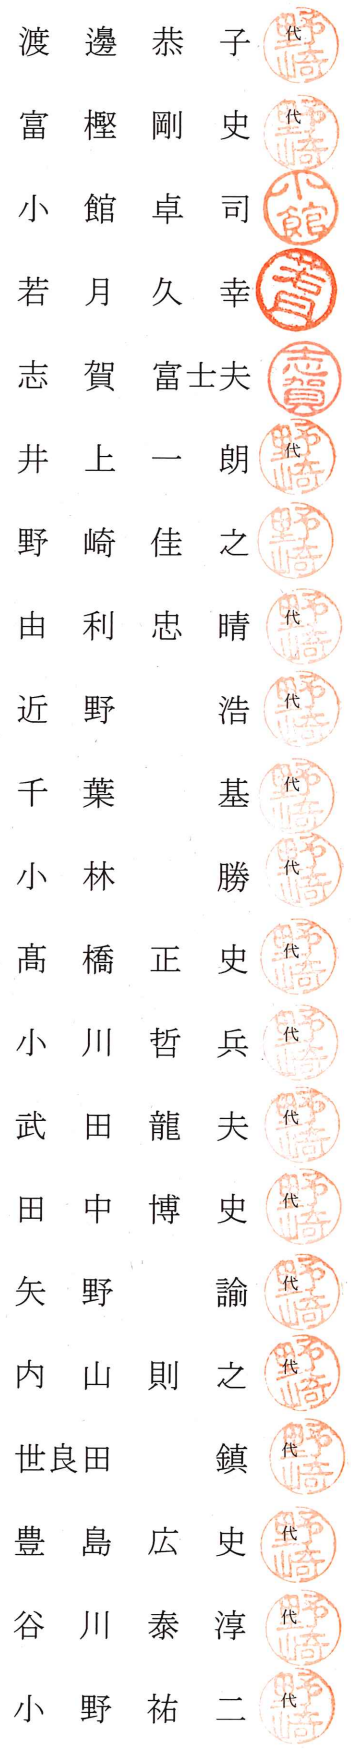 渡邊恭子 代 野崎
富樫剛史 代 野崎
小館卓司 小館
若月久幸 若月
志賀富士夫 志賀
井上一朗 代 野崎
野崎佳之 野崎
由利忠晴 代 野崎
近野浩 代 野崎
千葉基 代 野崎
小林勝 代 野崎
髙橋正史 代 野崎
小川哲兵 代 野崎
武田龍夫 代 野崎
田中博史 代 野崎
矢野諭 代 野崎
内山則之 代 野崎
世良田鎮 代 野崎
豊島広史 代 野崎
谷川泰淳 代 野崎
小野祐二 代 野崎